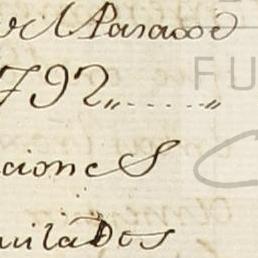 el Paraxe
1792,,......,,
ciones
uilados
FU